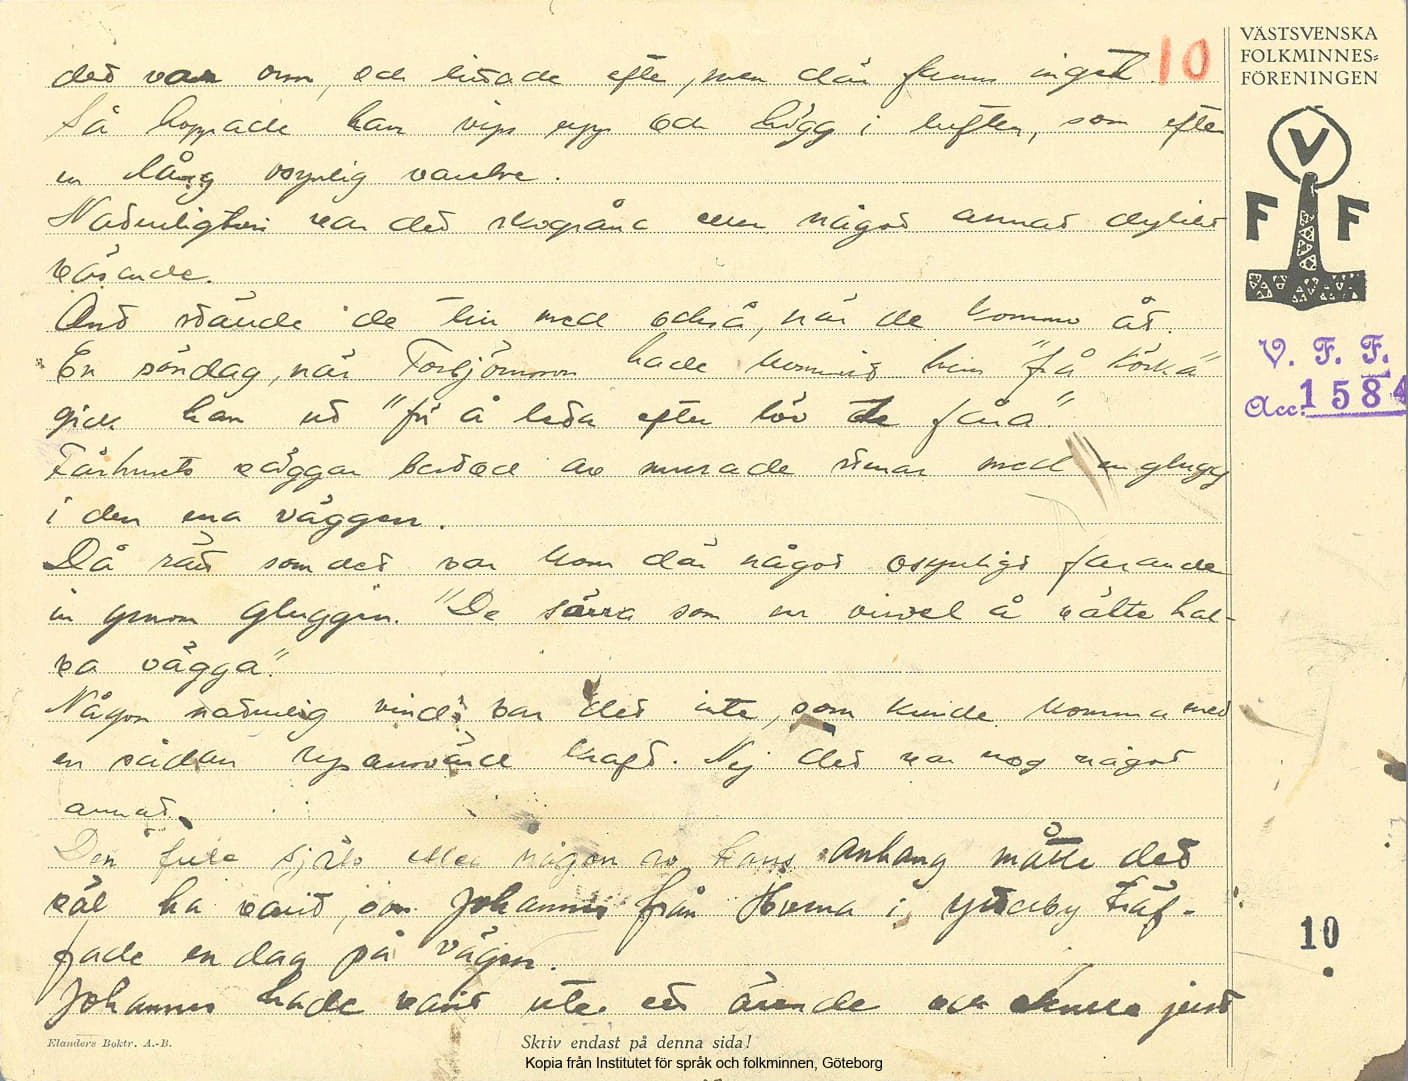 det var om, och letade efter, men där fanns inget. 10
Så hoppade han vips upp och högg i luften, som efter
en lång osynlig varelse.
Naturligtvis var det skogsråna eller något annat dylikt
väsande.
Ont stände de till med också, när de kommo åt.
En söndag, när Torbjörnson hade kommit hem "frå körka"
gick han ut "för å leta efter löv te fåra."
Fårhusets väggar bestod av murade stenar med en glugg
i den ena väggen.
Då rätt som det var kom där något osynligt farande
in genom gluggen. "De svarra som en virvel å välte hal-
va vägga".
Någon naturlig vind var det inte, som kunde komma med
en sådan upprorvärd kraft. Nej det var nog något
annat.
Den fule själv eller någon av hans anhang måtte det
väl ha varit, som Johannes från Hvena i Ytterby träf-
fade en dag på vägen.
Johannes hade varit ute i ett ärende och skulle just
VÄSTSVENSKA
FOLKMINNES-
FÖRENINGEN
V
F F
V. F. F.
Acc: 1584
10
Elanders Boktr. A.-B.
Skriv endast på denna sida!
Kopia från Institutet för språk och folkminnen, Göteborg